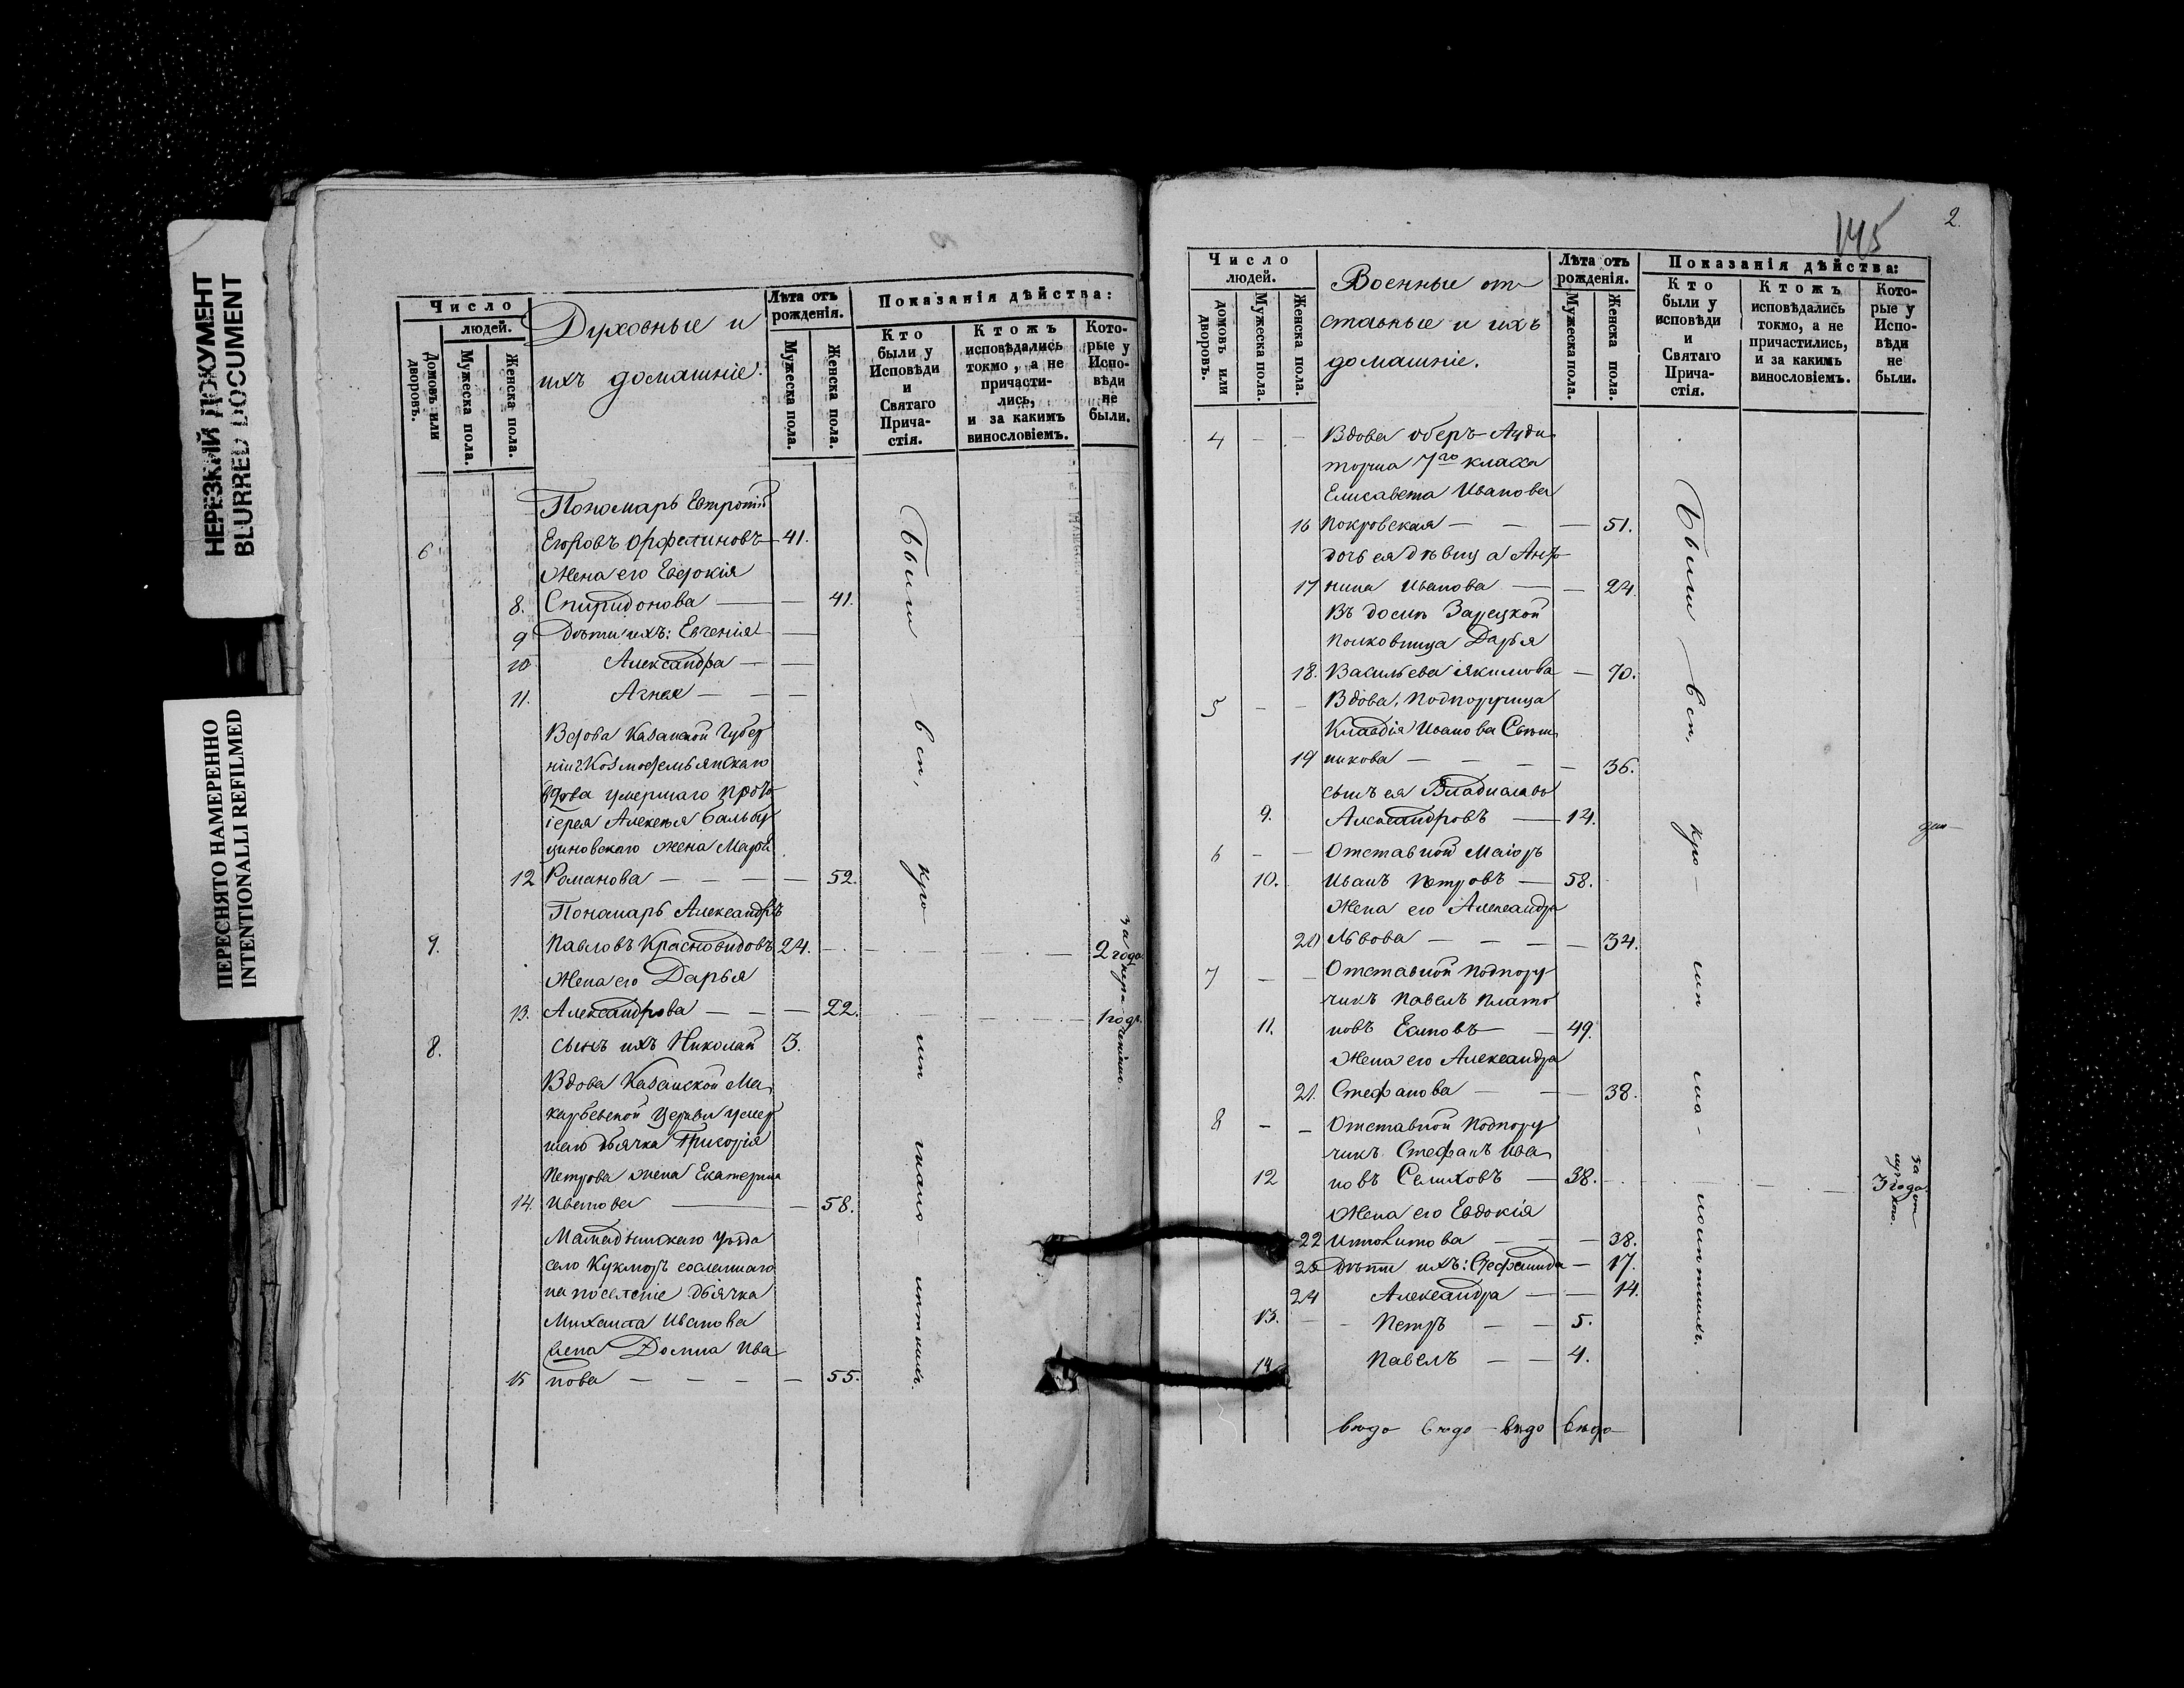 НЕРЕЗКИЙ ДОКУМЕНТ
BLURRED DOCUMENT
ПЕРЕСНЯТО НАМЕРЕННО
INTENTIONALLI REFILMED
Число
людей.
Домовъ или дворовъ.
Мужеска пола.
Женска пола.
Духовные и
ихъ домашніе.
Лѣта отъ
рожденія.
Мужеска пола.
Женска пола.
Показанія дѣйства:
Кто
были у
Исповѣди
и
Святаго
Прича-
стія.
Ктожъ
исповѣдались
токмо, а не
причасти-
лись,
и за какимъ
винословіемъ.
Кото-
рые у
Испо-
вѣди
не
были.
Пономарь Евтропій
6 Егоровъ 41.
Жена его Евдокія
8. Спиридонова — — 41.
9 Дѣти ихъ: Евгенія —
10 Александра — —
11. Агнея — — —
Вдова Казанской Губер
ніи г. Козмодемьянскаго
умершаго Прото
іерея Алексѣя
жена Марѳа
12 Романова — — — — 52.
Пономарь Александръ
Павловъ Красновидовъ 24. 2 года
Жена его Дарья
13. Александрова — — — 22. 1 годъ
8. Сынъ ихъ Николай 3.
Вдова Казанской Ма
карьевской Церкви умер
шаго дьячка Григорія
Петрова жена Екатерина
14. — — 58.
уѣзда
село Кукморъ сосланнаго
на поселеніе дьячка
Михаила Иванова
жена Домна Ива
15 нова — — — — 55.
Были всп, кро
2.
145
Число
людей.
домовъ или дворовъ.
Мужеска пола.
Женска пола.
Военные от
ставные и ихъ
домашніе.
Лѣта отъ
рожденія.
Мужеска пола.
Женска пола.
Показанія дѣйства:
Кто
были у
исповѣди
и
Святаго
Прича-
стія.
Ктожъ
исповѣдались
токмо, а не
причастились,
и за какимъ
винословіемъ.
Кото-
рые у
Испо-
вѣди
не
были.
4 — — Вдова оберъ-Ауди
торша 7го класса
Елисавета Иванова
16 Покровская — — — 51.
дочь ея дѣвица Анто
17 нина Иванова — — 24.
Въ домѣ Зарецкой
Полковница Дарья
18. Васильева Якимова — 70.
5 — — Вдова, Подпорутчица
Клавдія Иванова
19 никова — — — — 36.
сынъ ея Владиславъ
9. Александровъ — 14.
6 — — Отставной Маіоръ
10. Иванъ Петровъ — 58.
Жена его Александра
20 Львова — — — — 34.
7 — — Отставной Подпору
чикъ Павелъ Плато
11. новъ Есиповъ — — 49.
Жена его Александра
21. Стефанова — — — 38.
8 — — Отставной Подпору
чикъ Стефанъ Ива
12 новъ Семиховъ — 38. 3 года
Жена его Евдокія
22 — — — 38.
23 Дѣти ихъ: — 17.
24 Александра — — 14.
13. — — Петръ — — 5.
14 Павелъ — — 4.
Были всп, кро